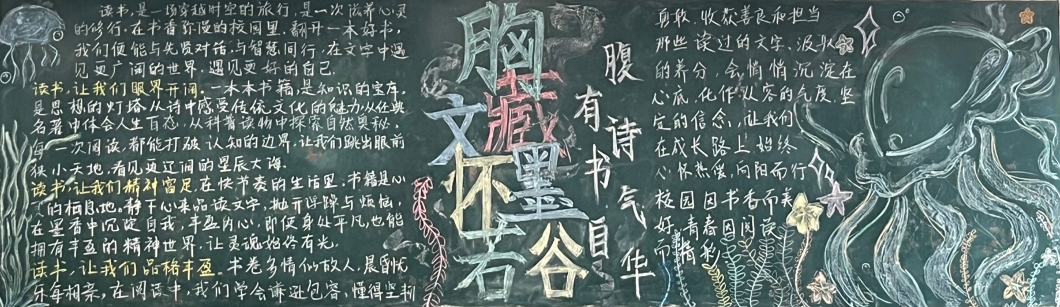 读书，是一场穿越时空的旅行，是一次滋养心灵
的修行。在书香弥漫的校园里，翻开一本好书，
我们便能与先贤对话，与智慧同行，在文字中遇
见更广阔的世界，遇见更好的自己。
读书，让我们眼界开阔。一本本书籍，是知识的宝库，
是思想的灯塔。从诗中感受传统文化的魅力，从经典
名著中体会人生百态，从科普读物中探索自然奥秘，
每一次阅读，都能打破认知的边界，让我们跳出眼前
狭小天地，看见更辽阔的星辰大海。
读书，让我们精神富足。在快节奏的生活里，书籍是心
灵的栖息地。静下心来品读文字，抛开浮躁与烦恼，
在墨香中沉淀自我，丰盈内心，即便身处平凡，也能
拥有丰盈的精神世界，让灵魂始终有光。
读书，让我们品格丰盈。书卷多情似故人，晨昏忧
乐每相亲，在阅读中，我们学会谦逊包容，懂得坚韧
胸藏文墨怀若谷
腹有诗书气自华
勇敢，收获善良和担当
那些读过的文字，汲取
的养分，会悄悄沉淀在
心底，化作从容的气度，坚
定的信念，让我们
在成长路上始终
心怀热爱，向阳而行
校园因书香而美
好，青春因阅读
而精彩